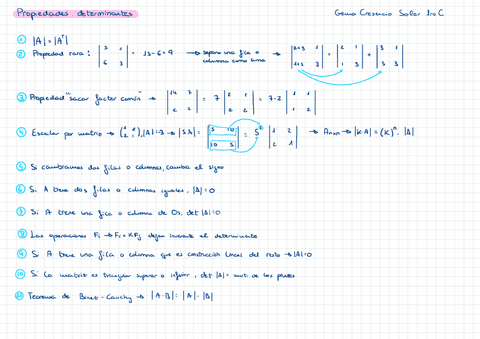 Propiedades determinantes Gema Crescencio Soler 1ro C
① |A| = |Aᵗ|
② Propiedad rara: |5 1; 6 3| = 15-6=9 → separo una fila o columna como suma |2+3 1; 1+5 3| = |2 1; 1 3| + |3 1; 5 3|
③ Propiedad "sacar factor común" → |14 7; 2 2| = 7 |2 1; 2 2| = 7·2 |1 1; 1 2|
④ Escalar por matriz → (1 2; 2 1), |A|=-3 → |5A| = |5 10; 10 5| = 5² |1 2; 2 1| → Anxn → |K·A| = (K)ⁿ · |A|
⑤ Si cambiamos dos filas o columnas, cambia el signo
⑥ Si A tiene dos filas o columnas iguales, |A|=0
⑦ Si A tiene una fila o columna de 0s, det |A|=0
⑧ Las operaciones Fi → Fi + KFj dejan invariante el determinante
⑨ Si A tiene una fila o columna que es combinación lineal del resto → |A|=0
⑩ Si la matriz es triangular superior o inferior, det |A| = mult. de los
⑪ Teorema de Binet-Cauchy → |A·B| = |A|·|B|